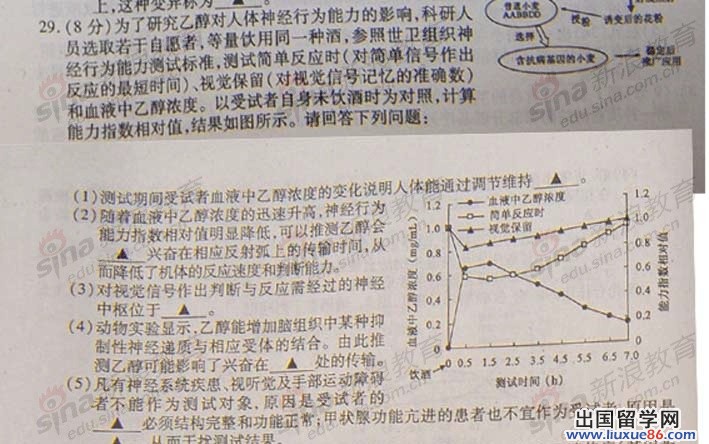 上,这种变异称为 ▲ 。
29.(8 分)为了研究乙醇对人体神经行为能力的影响,科研人
员选取若干自愿者,等量饮用同一种酒,参照世卫组织神
经行为能力测试标准,测试简单反应时(对简单信号作出
反应的最短时间)、视觉保留(对视觉信号记忆的准确数)
和血液中乙醇浓度。以受试者自身未饮酒时为对照,计算
能力指数相对值,结果如图所示。请回答下列问题:
普通小麦
AABBDD
授粉
诱变后的花粉
选择
含抗病基因的小麦
稳定后
推广应用
(1)测试期间受试者血液中乙醇浓度的变化说明人体能通过调节维持 ▲ 。
(2)随着血液中乙醇浓度的迅速升高,神经行为
能力指数相对值明显降低,可以推测乙醇会
▲ 兴奋在相应反射弧上的传输时间,从
而降低了机体的反应速度和判断能力。
(3)对视觉信号作出判断与反应需经过的神经
中枢位于 ▲ 。
(4)动物实验显示,乙醇能增加脑组织中某种抑
制性神经递质与相应受体的结合。由此推
测乙醇可能影响了兴奋在 ▲ 处的传输。
(5)凡有神经系统疾患、视听觉及手部运动障碍
者不能作为测试对象,原因是受试者的
▲ 必须结构完整和功能正常;甲状腺功能亢进的患者也不宜作为受试者,原因是
▲ ,从而干扰测试结果。
血液中乙醇浓度
简单反应时
视觉保留
1.2
1.0
0.8
0.6
0.4
0.2
0
血液中乙醇浓度 (mg/mL)
1.2
1.0
0.8
0.6
0.4
0.2
0
能力指数相对值
0 0.5 1.5 2.5 3.5 4.5 5.5 6.5 7.0
饮酒
测试时间 (h)
sina 新浪教育
edu.sina.com.cn
出国留学网
www.liuxue86.com